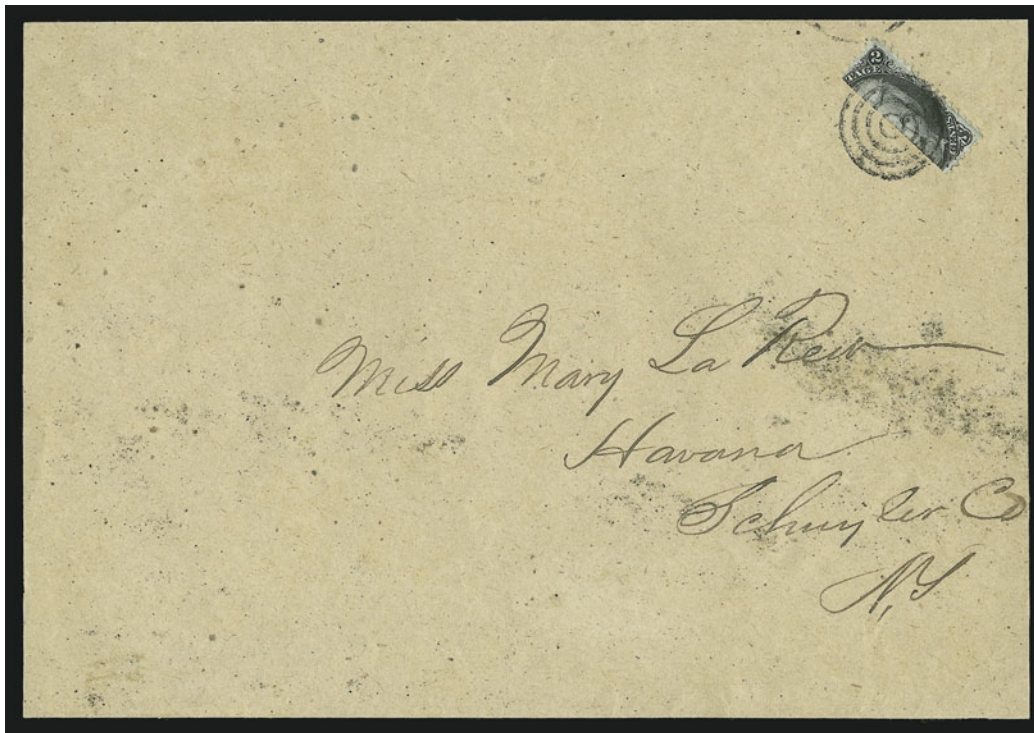 2
TAGE
2
Miss Mary La Rew
Havana
Schuyler Co
N,Y